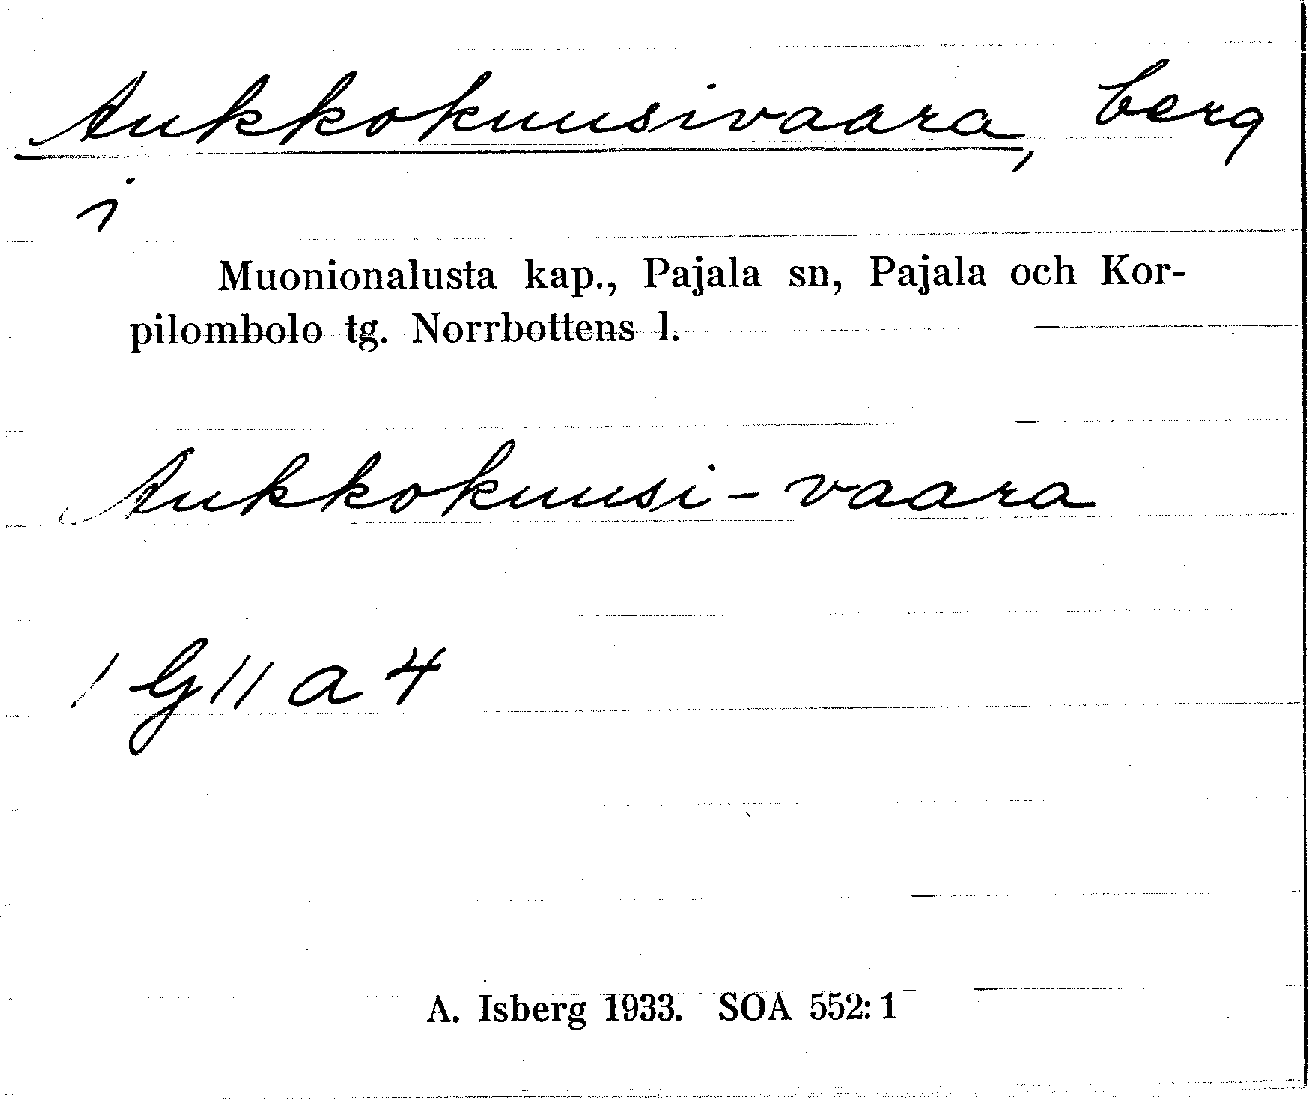 Aukkokuusivaara, berg
i
Muonionalusta kap., Pajala sn, Pajala och Kor-
pilombolo tg. Norrbottens l.
Aukkokuusi-vaara
1 G 11 a 4
A. Isberg 1933. SOA 552: 1